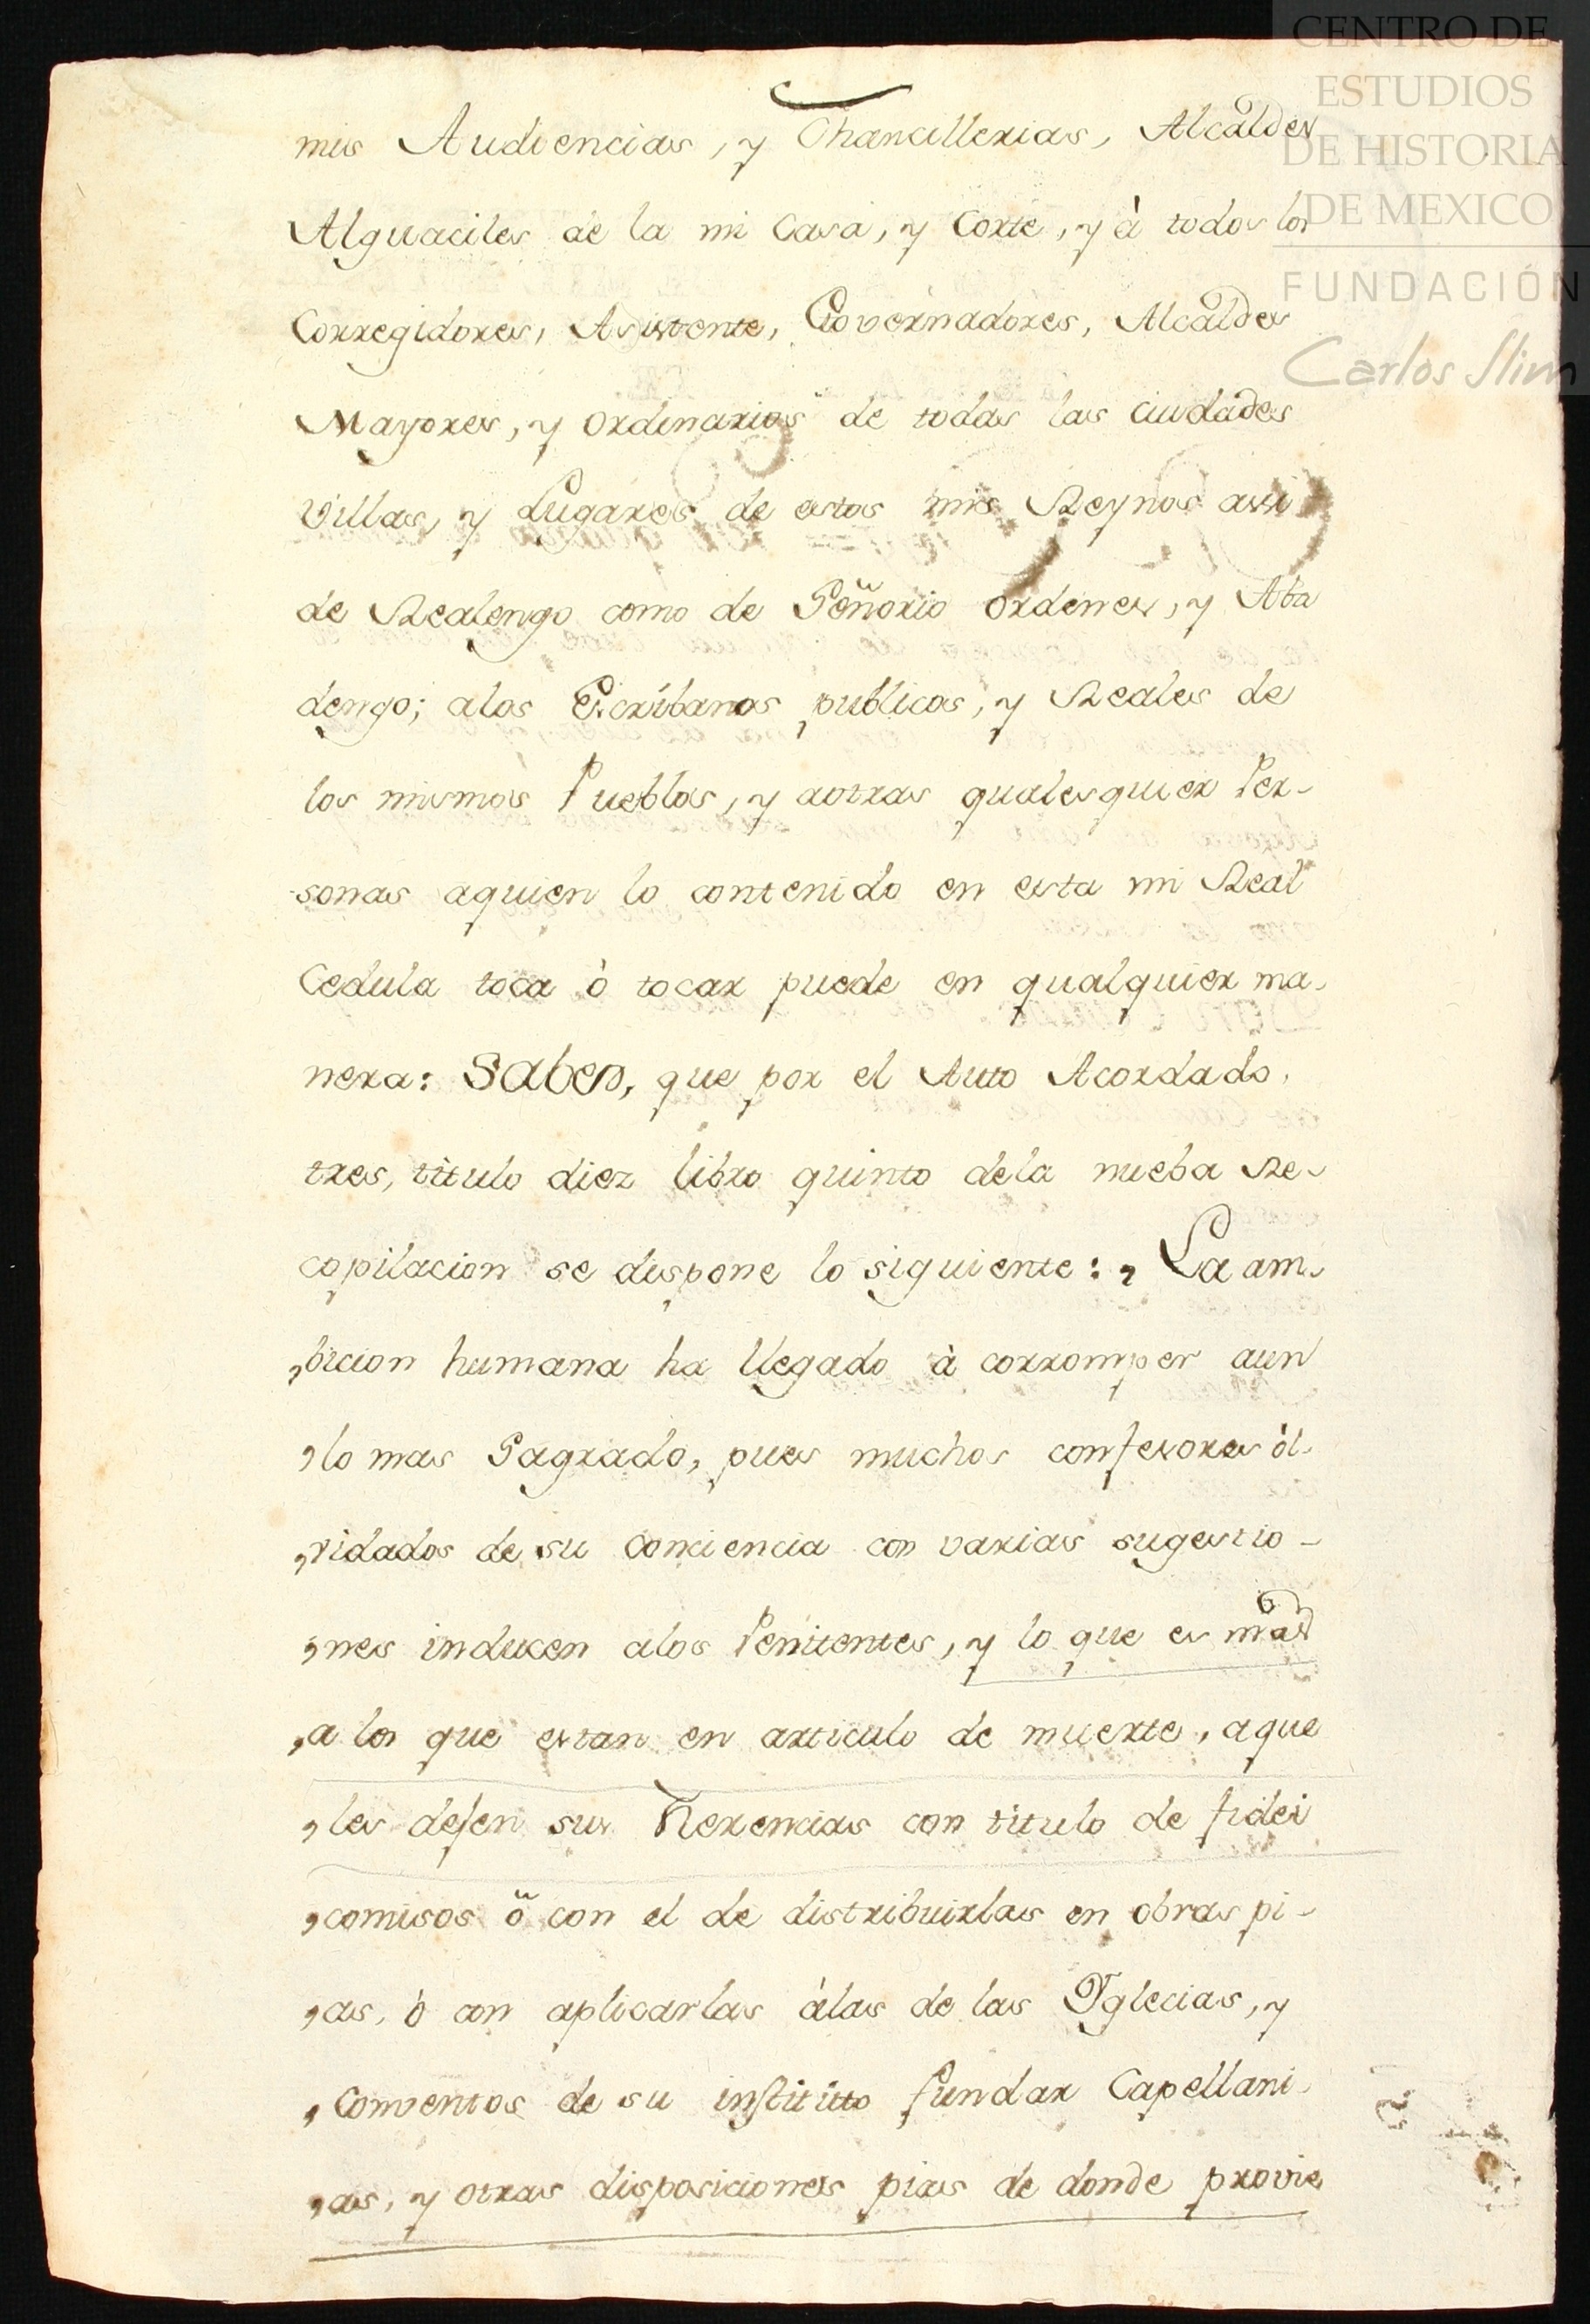 CENTRO DE
ESTUDIOS
DE HISTORIA
DE MEXICO
FUNDACIÓN
Carlos Slim
mis Audiencias, y Chancillerias, Alcaldes
Alguaciles de la mi Casa, y Corte, y à todos los
Corregidores, Asistente, Governadores, Alcaldes
Mayores, y ordinarios de todas las ciudades
Villas, y Lugares de estos mis Reynos assi
de Realengo como de Señorio ordenes, y Aba
dengo; alos Escribanos publicos, y Reales de
los mismos Pueblos, y aotras qualesquier Per-
sonas aquien lo contenido en esta mi Real
Cedula toca ò tocar puede en qualquier ma-
nera: Sabed, que por el Auto Acordado,
tres, titulo diez libro quinto dela nueba Re-
copilacion se dispone lo siguiente: , La am-
,bicion humana ha llegado à corromper aun
,lo mas Sagrado, pues muchos confesores ol-
,vidados de su Conciencia con varias sugestio-
,nes inducen alos Penitentes, y lo que es mas
,a los que estan en articulo de muerte, a que
,les dejen sus Herencias con titulo de fidei
,comisos ò con el de distribuirlas en obras pi-
,as, ò con aplicarlas àlas de las Yglecias, y
,Conventos de su instituto fundar Capellani-
,as, y otras disposiciones pias de donde provie